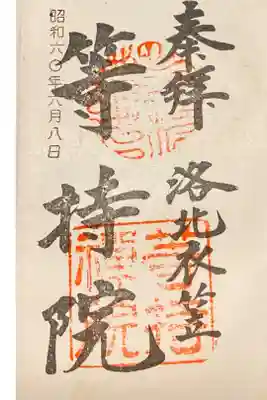 奉拜
洛北衣笠
等持院
昭和六〇年八月八日